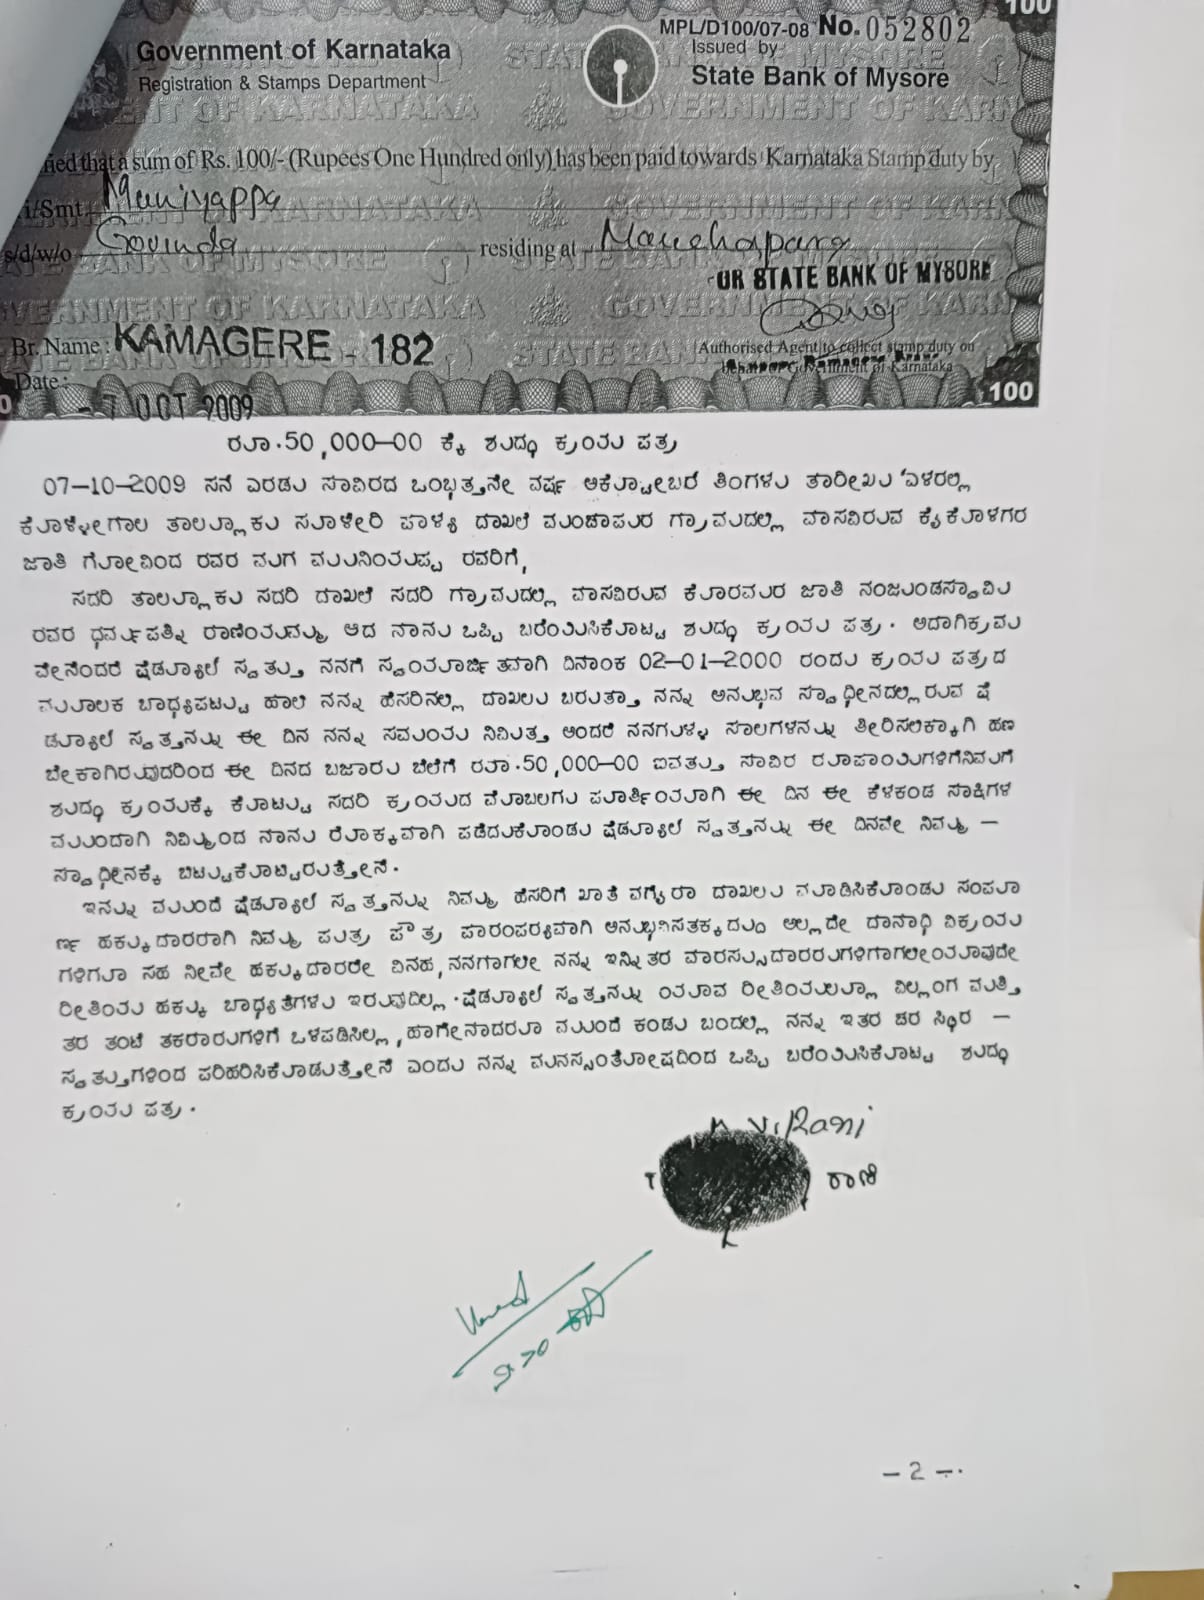 100
MPL/D100/07-08 No. 052802
Government of Karnataka
Issued by
Registration & Stamps Department
State Bank of Mysore
that a sum of Rs. 100/- (Rupees One Hundred only) has been paid towards Karnataka Stamp duty by
i/Smt. Muniyappa
s/d/w/o Govinda residing at
OR STATE BANK OF MYSORE
Br. Name : KAMAGERE - 182
Authorised Agent to collect stamp duty on
Government of Karnataka
Date : - 7 OCT 2009
100
ರೂ.50,000-00 ಕ್ಕೆ ಶುದ್ಧ ಕ್ರಯ ಪತ್ರ
07-10-2009 ಸನೆ ಎರಡು ಸಾವಿರದ ಒಂಭತ್ತನೇ ವರ್ಷ ಅಕ್ಟೋಬರ್ ತಿಂಗಳು ತಾರೀಖು ಏಳರಲ್ಲಿ
ಕೊಳ್ಳೇಗಾಲ ತಾಲ್ಲೂಕು ಸೂಳೇರಿ ಪಾಳ್ಯ ದಾಖಲೆ ಮಂಚಾಪುರ ಗ್ರಾಮದಲ್ಲಿ ವಾಸವಿರುವ ಕೈಕೊಳಗರ
ಜಾತಿ ಗೋವಿಂದ ರವರ ಮಗ ಮುನಿಯಪ್ಪ ರವರಿಗೆ,
ಸದರಿ ತಾಲ್ಲೂಕು ಸದರಿ ದಾಖಲೆ ಸದರಿ ಗ್ರಾಮದಲ್ಲಿ ವಾಸವಿರುವ ಕೊರಮರ ಜಾತಿ ನಂಜುಂಡಸ್ವಾಮಿ
ರವರ ಧರ್ಮಪತ್ನಿ ರಾಣಿಯಮ್ಮ ಆದ ನಾನು ಒಪ್ಪಿ ಬರೆಯಿಸಿಕೊಟ್ಟ ಶುದ್ಧ ಕ್ರಯ ಪತ್ರ. ಅದಾಗಿಕ್ರಮ
ವೇನೆಂದರೆ ಷೆಡ್ಯೂಲ್ ಸ್ವತ್ತು ನನಗೆ ಸ್ವಯಾರ್ಜಿತವಾಗಿ ದಿನಾಂಕ 02-01-2000 ರಂದು ಕ್ರಯ ಪತ್ರದ
ಮೂಲಕ ಬಾಧ್ಯಪಟ್ಟು ಹಾಲಿ ನನ್ನ ಹೆಸರಿನಲ್ಲಿ ದಾಖಲು ಬರುತ್ತಾ ನನ್ನ ಅನುಭವ ಸ್ವಾಧೀನದಲ್ಲಿರುವ ಷೆ
ಡ್ಯೂಲ್ ಸ್ವತ್ತನ್ನು ಈ ದಿನ ನನ್ನ ಸಮಯ ನಿಮಿತ್ತ ಅಂದರೆ ನನಗುಳ್ಳ ಸಾಲಗಳನ್ನು ತೀರಿಸಲಿಕ್ಕಾಗಿ ಹಣ
ಬೇಕಾಗಿರುವುದರಿಂದ ಈ ದಿನದ ಬಜಾರು ಬೆಲೆಗೆ ರೂ.50,000-00 ಐವತ್ತು ಸಾವಿರ ರೂಪಾಯಿಗಳಿಗೆನಿಮಗೆ
ಶುದ್ಧ ಕ್ರಯಕ್ಕೆ ಕೊಟ್ಟು ಸದರಿ ಕ್ರಯದ ಮೊಬಲಗು ಪೂರ್ತಿಯಾಗಿ ಈ ದಿನ ಈ ಕೆಳಕಂಡ ಸಾಕ್ಷಿಗಳ
ಮುಂದಾಗಿ ನಿಮ್ಮಿಂದ ನಾನು ರೊಕ್ಕವಾಗಿ ಪಡೆದುಕೊಂಡು ಷೆಡ್ಯೂಲ್ ಸ್ವತ್ತನ್ನು ಈ ದಿನವೇ ನಿಮ್ಮ -
ಸ್ವಾಧೀನಕ್ಕೆ ಬಿಟ್ಟುಕೊಟ್ಟಿರುತ್ತೇನೆ.
ಇನ್ನು ಮುಂದೆ ಷೆಡ್ಯೂಲ್ ಸ್ವತ್ತನ್ನು ನಿಮ್ಮ ಹೆಸರಿಗೆ ಖಾತೆ ವಗೈರಾ ದಾಖಲು ಮಾಡಿಸಿಕೊಂಡು ಸಂಪೂ
ರ್ಣ ಹಕ್ಕುದಾರರಾಗಿ ನಿಮ್ಮ ಪುತ್ರ ಪೌತ್ರ ಪಾರಂಪರ್ಯವಾಗಿ ಅನುಭವಿಸತಕ್ಕದ್ದು ಅಲ್ಲದೇ ದಾನಾಧಿ ವಿಕ್ರಯ
ಗಳಿಗೂ ಸಹ ನೀವೇ ಹಕ್ಕುದಾರರೇ ವಿನಹ, ನನಗಾಗಲೀ ನನ್ನ ಇನ್ನಿತರ ವಾರಸುದಾರರುಗಳಿಗಾಗಲೀಯಾವುದೇ
ರೀತಿಯ ಹಕ್ಕು ಬಾಧ್ಯತೆಗಳು ಇರುವುದಿಲ್ಲ. ಷೆಡ್ಯೂಲ್ ಸ್ವತ್ತನ್ನು ಯಾವ ರೀತಿಯಲ್ಲೂ ವಿಲ್ಲಂಗ ಮತ್ತಿ
ತರ ತಂಟೆ ತಕರಾರುಗಳಿಗೆ ಒಳಪಡಿಸಿಲ್ಲ, ಹಾಗೇನಾದರೂ ಮುಂದೆ ಕಂಡು ಬಂದಲ್ಲಿ ನನ್ನ ಇತರ ಚರ ಸ್ಥಿರ -
ಸ್ವತ್ತುಗಳಿಂದ ಪರಿಹರಿಸಿಕೊಡುತ್ತೇನೆ ಎಂದು ನನ್ನ ಮನಸ್ಸಂತೋಷದಿಂದ ಒಪ್ಪಿ ಬರೆಯಿಸಿಕೊಟ್ಟ ಶುದ್ಧ
ಕ್ರಯ ಪತ್ರ.
V. Rani
ರಾಣಿ
- 2 -.